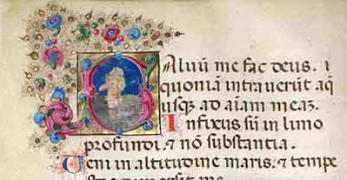 Saluū me fac deus. ı
quoniā intrauerūt aq̄
usq; ad aīam meaʒ.
Infixus sū in limo
profundi. ⁊ nō substantia.
Ueni in altitudine maris. ⁊ tempe